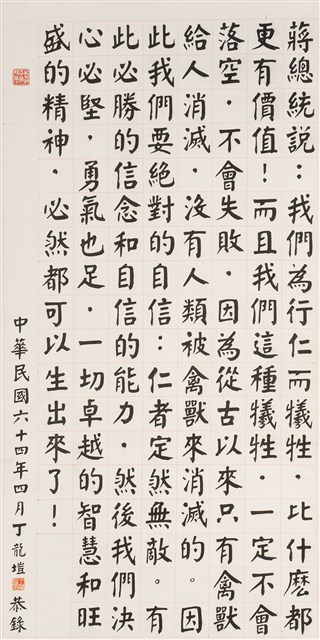 蔣總統說：我們為行仁而犧牲，比什麼都
更有價值！而且我們這種犧牲，一定不會
落空，不會失敗，因為從古以來只有禽獸
給人消滅，沒有人類被禽獸來消滅的。因
此我們要絕對的自信：仁者定然無敵。有
此必勝的信念和自信的能力，然後我們決
心必堅，勇氣也足，一切卓越的智慧和旺
盛的精神，必然都可以生出來了！
中華民國六十四年四月丁龍塏恭錄